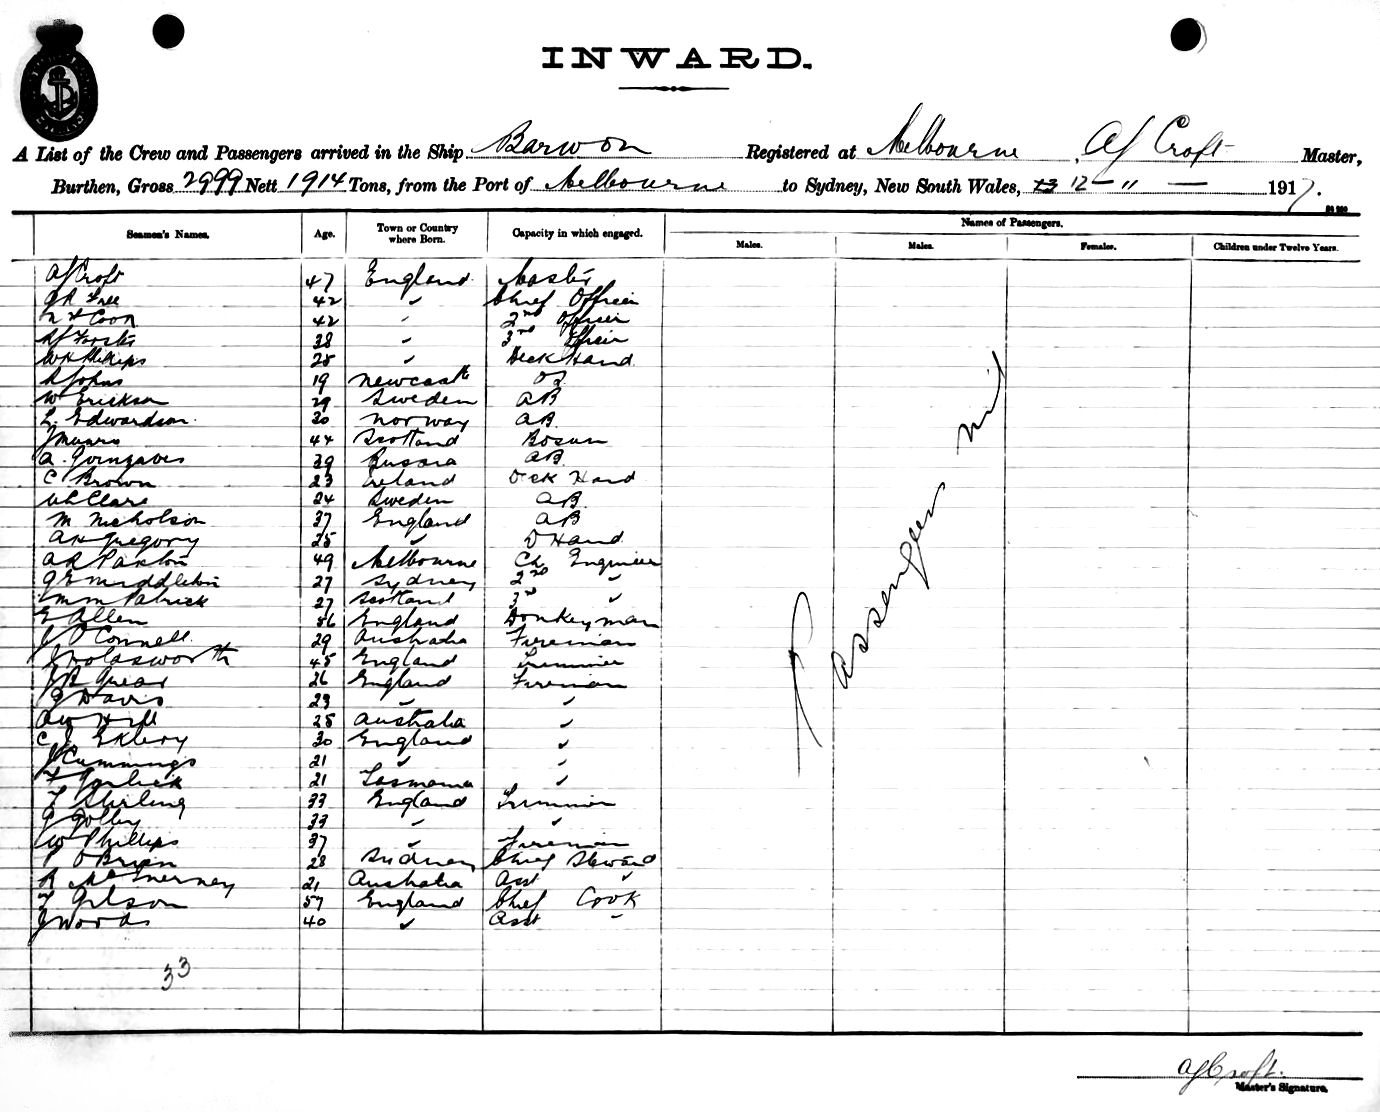 INWARD.
A List of the Crew and Passengers arrived in the Ship Barwon Registered at Melbourne AJ Croft Master,
Burthen, Gross 2999 Nett 1914 Tons, from the Port of Melbourne to Sydney, New South Wales, 12 - " - 1917.
Names of Passengers.
Seamen's Names. Age. Town or Country where Born. Capacity in which engaged. Males. Males. Females. Children under Twelve Years.
AJ Croft 47 England Master
Free 42 " Chief Officer
Coon 42 " 2nd Officer
38 " 3rd Officer
WH Phillips 28 " Deck Hand
R Johns 19 Newcastle OS
W Erickson 29 Sweden AB
L. Edwardson 30 Norway AB
J Munro 44 Scotland Bosun
A. 39 Russia AB
C Brown 23 Ireland Deck Hand
Clare 24 Sweden AB
M Nicholson 37 England AB
AH Gregory 25 " D Hand
AR Paxton 49 Melbourne Ch Engineer
GE Middleton 27 Sydney 2nd "
Patrick 27 Scotland 3rd "
E Allen England Donkeyman
J O'Connell 29 Australia Fireman
J Holdsworth 45 England Trimmer
26 England Fireman
Davis 23 " "
AW Hill 25 Australia "
C J 30 England "
J Cummings 21 " "
F Garlick 21 Tasmania "
T Stirling 33 England Trimmer
33 " "
W Phillips 37 " Fireman
P O'Brien 28 Sydney Chief Steward
R McInerney 21 Australia Asst "
57 England Chief Cook
J Woods 40 " Asst "
Passengers nil
33
AJ Croft.
Master's Signature.